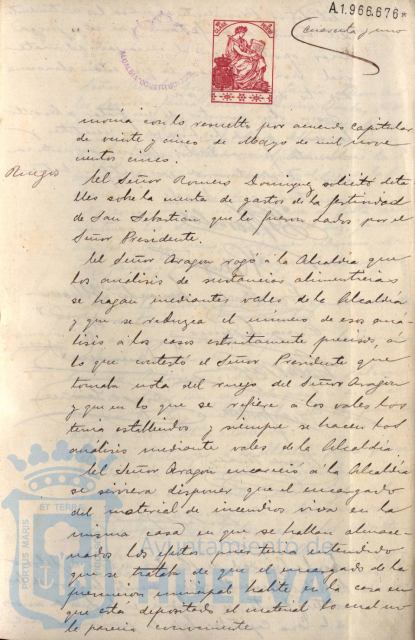 A.1.966.676
Cuarenta y uno
monia con lo resuelto por acuerdo capitular
de veinte y cinco de Mayo de mil nove
cientos cinco.
Ruegos
El Señor Romero Dominguez solicitó deta
lles sobre la cuenta de gastos de la festividad
de San Sebastián que le fueron dados por el
Señor Presidente.
El Señor Aragón rogó á la Alcaldia que
los análisis de sustancias alimenticias
se hagan mediantes vales de la Alcaldia
y que se reduzca el número de esos aná
lisis á los casos estrictamente precisos, á
lo que contestó el Señor Presidente que
tomaba nota del ruego del Señor Aragón
y que en lo que se refiere á los vales los
tenia establecidos y siempre se hacen los
análisis mediante vales de la Alcaldia.
El Señor Aragón encareció á la Alcaldia
se sirviera disponer que el encargado
del material de incendios viva en la
misma casa en que se hallan almace
nados los efectos pues tenia entendido
que se trataba de que el encargado de la
prevención municipal habite en la casa en
que está depositado el material lo cual no
le parecia conveniente.
PORTUS MARIS
ET TERRE
Ayuntamiento de
HUELVA